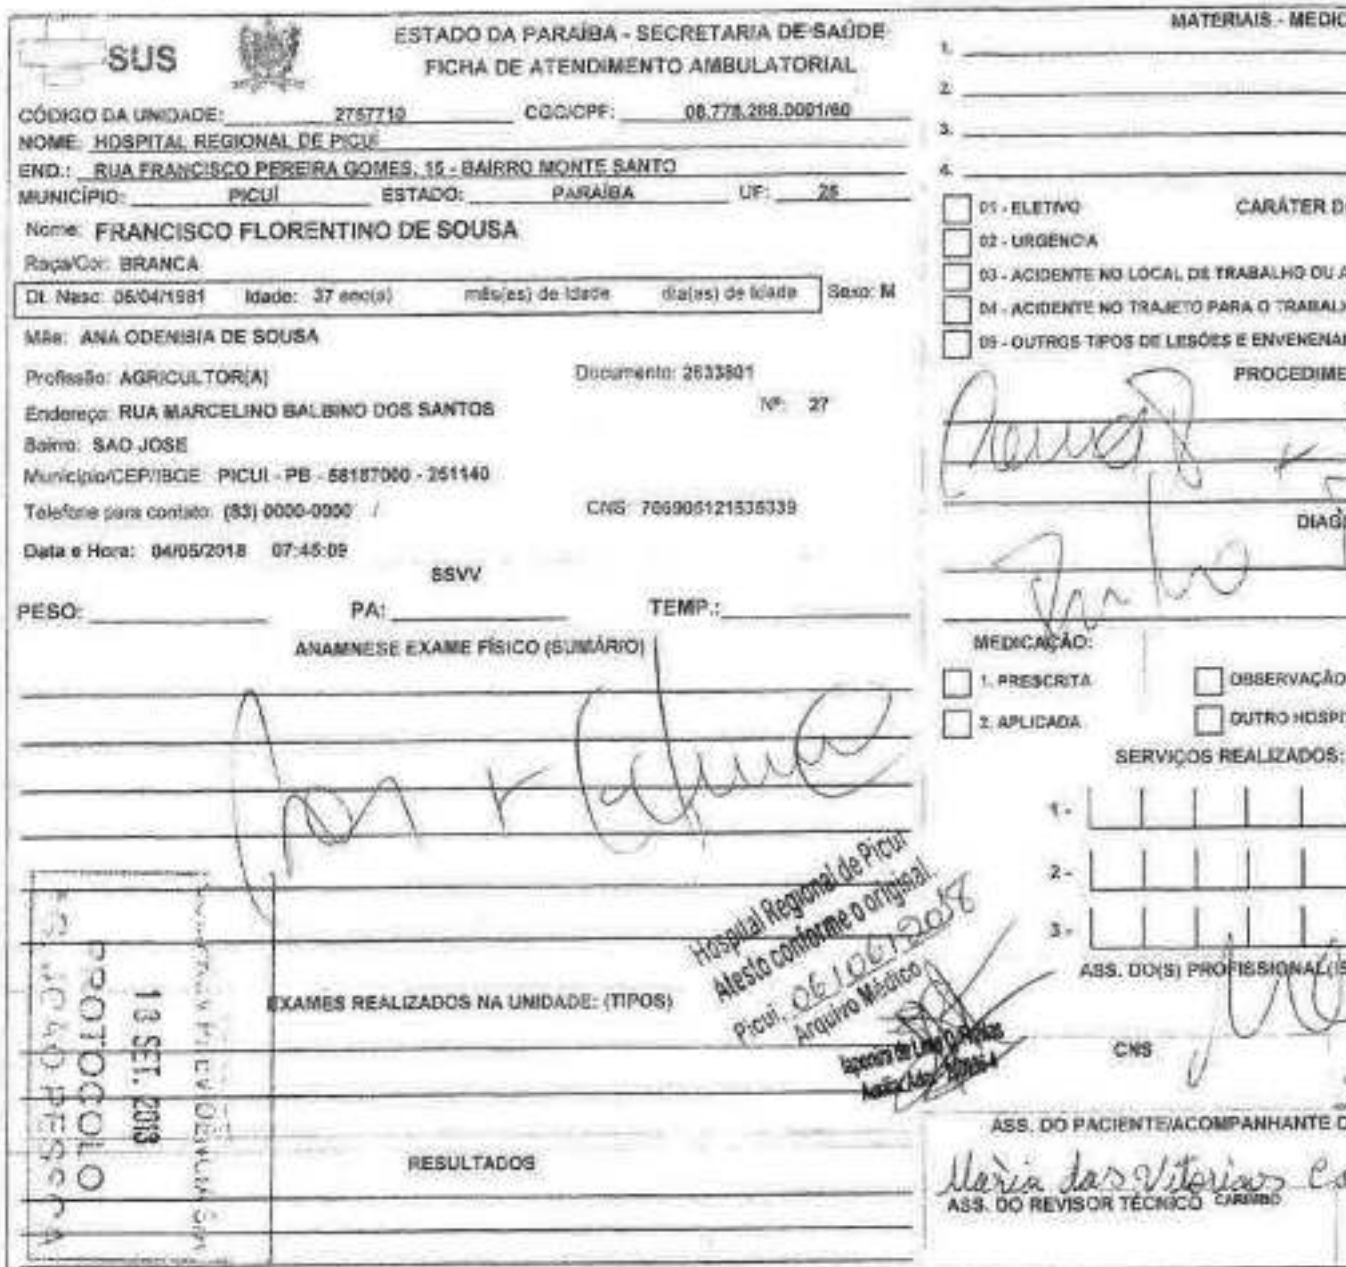 SUS
ESTADO DA PARAÍBA - SECRETARIA DE SAÚDE
FICHA DE ATENDIMENTO AMBULATORIAL
CÓDIGO DA UNIDADE: 2757710 CGC/CPF: 08.778.268.0001/60
NOME: HOSPITAL REGIONAL DE PICUÍ
END.: RUA FRANCISCO PEREIRA GOMES, 15 - BAIRRO MONTE SANTO
MUNICÍPIO: PICUÍ ESTADO: PARAÍBA UF: 25
Nome: FRANCISCO FLORENTINO DE SOUSA
Raça/Cor: BRANCA
Dt. Nasc: 05/04/1981 Idade: 37 ano(s) mês(es) de Idade dia(as) de Idade Sexo: M
Mãe: ANA ODENISIA DE SOUSA
Profissão: AGRICULTOR(A) Documento: 2633801
Endereço: RUA MARCELINO BALBINO DOS SANTOS Nº: 27
Bairro: SAO JOSE
Município/CEP/IBGE: PICUI - PB - 58187000 - 251140
Telefone para contato: (83) 0000-0000 / CNS: 706906121535339
Data e Hora: 04/05/2018 07:45:09
SSVV
PESO: PA: TEMP.:
ANAMNESE EXAME FÍSICO (SUMÁRIO)
Hospital Regional de Picuí
Atesto conforme o original
Picuí, 06/06/2018
Arquivo Médico
EXAMES REALIZADOS NA UNIDADE: (TIPOS)
PROTOCOLO
RESULTADOS
MATERIAIS - MEDIC
1.
2.
3.
4.
CARÁTER D
01 - ELETIVO
02 - URGÊNCIA
03 - ACIDENTE NO LOCAL DE TRABALHO OU A
04 - ACIDENTE NO TRAJETO PARA O TRABAL
05 - OUTROS TIPOS DE LESÕES E ENVENENA
PROCEDIME
DIAG
MEDICAÇÃO:
1. PRESCRITA OBSERVAÇÃO
2. APLICADA OUTRO HOSPI
SERVIÇOS REALIZADOS:
1 -
2 -
3 -
ASS. DO(S) PROFISSIONAL(IS
CNS
ASS. DO PACIENTE/ACOMPANHANTE
Maria das Vitorias
ASS. DO REVISOR TÉCNICO CARIMBO